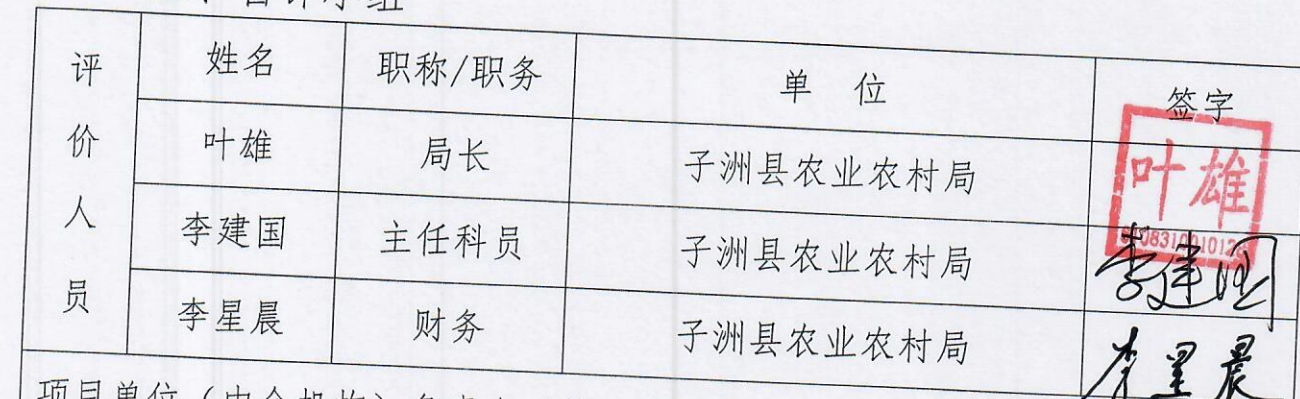 评价人员
姓名 职称/职务 单 位 签字
叶雄 局长 子洲县农业农村局 叶雄
李建国 主任科员 子洲县农业农村局 李建国
李星晨 财务 子洲县农业农村局 李星晨
项目单位（中介机构）